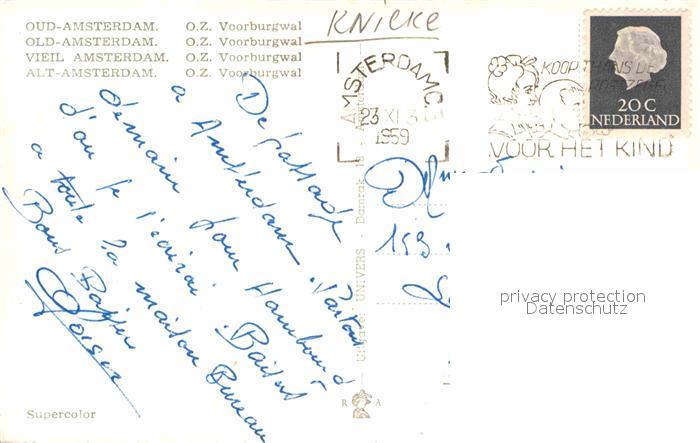 OUD-AMSTERDAM. O.Z. Voorburgwal
OLD-AMSTERDAM. O.Z. Voorburgwal
VIEIL AMSTERDAM. O.Z. Voorburgwal
ALT-AMSTERDAM. O.Z. Voorburgwal
KNICKE
AMSTERDAM C.
23 XI
1959
KOOP THANS DE
VOOR HET KIND
20 C
NEDERLAND
De passage
a Amsterdam. Partons
demain pour Hambourg
d'ou je t'ecrirai. Baisers
a toute la maison Bureau
Bons Baisers
Uitgave: UNIVERS - Damrak - Amsterdam
159
R A
Supercolor
privacy protection
Datenschutz